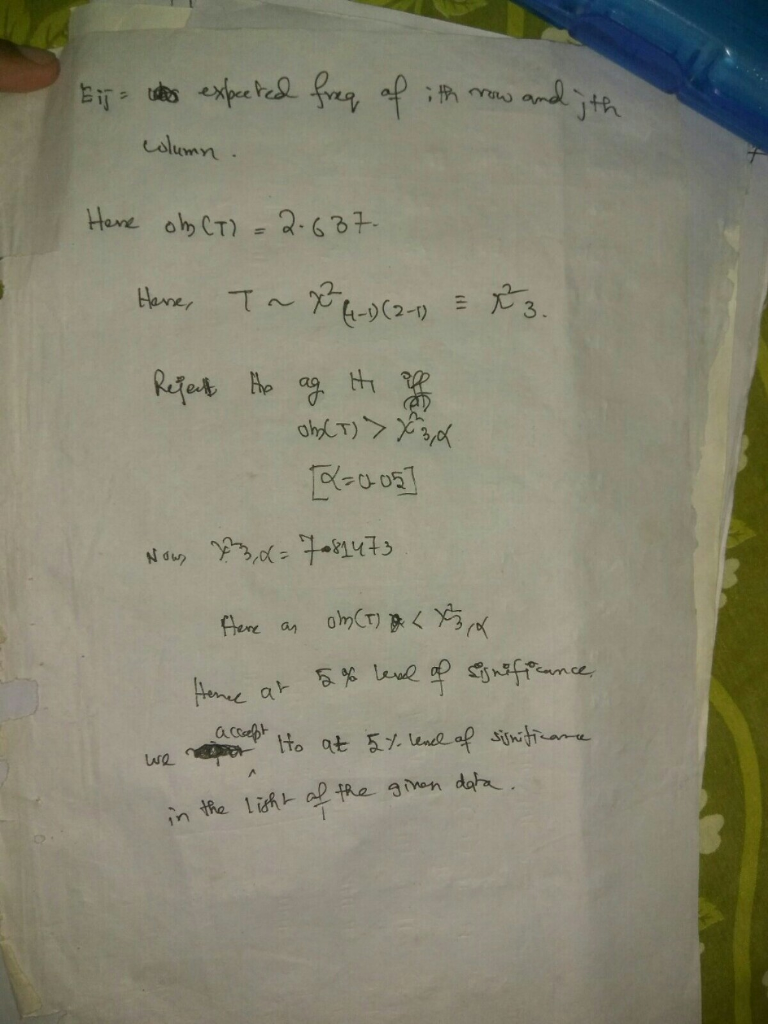 Eij = expected freq of ith row and jth
column.
Here obs(T) = 2.637.
Here, T ~ χ²(4-1)(2-1) ≡ χ²3.
Reject Ho ag H1 iff
obs(T) > χ²3,α
[α=0.05]
Now, χ²3,α = 7.81473
Here as obs(T) < χ²3,α
Hence at 5% level of significance
we accept Ho at 5% level of significance
in the light of the given data.